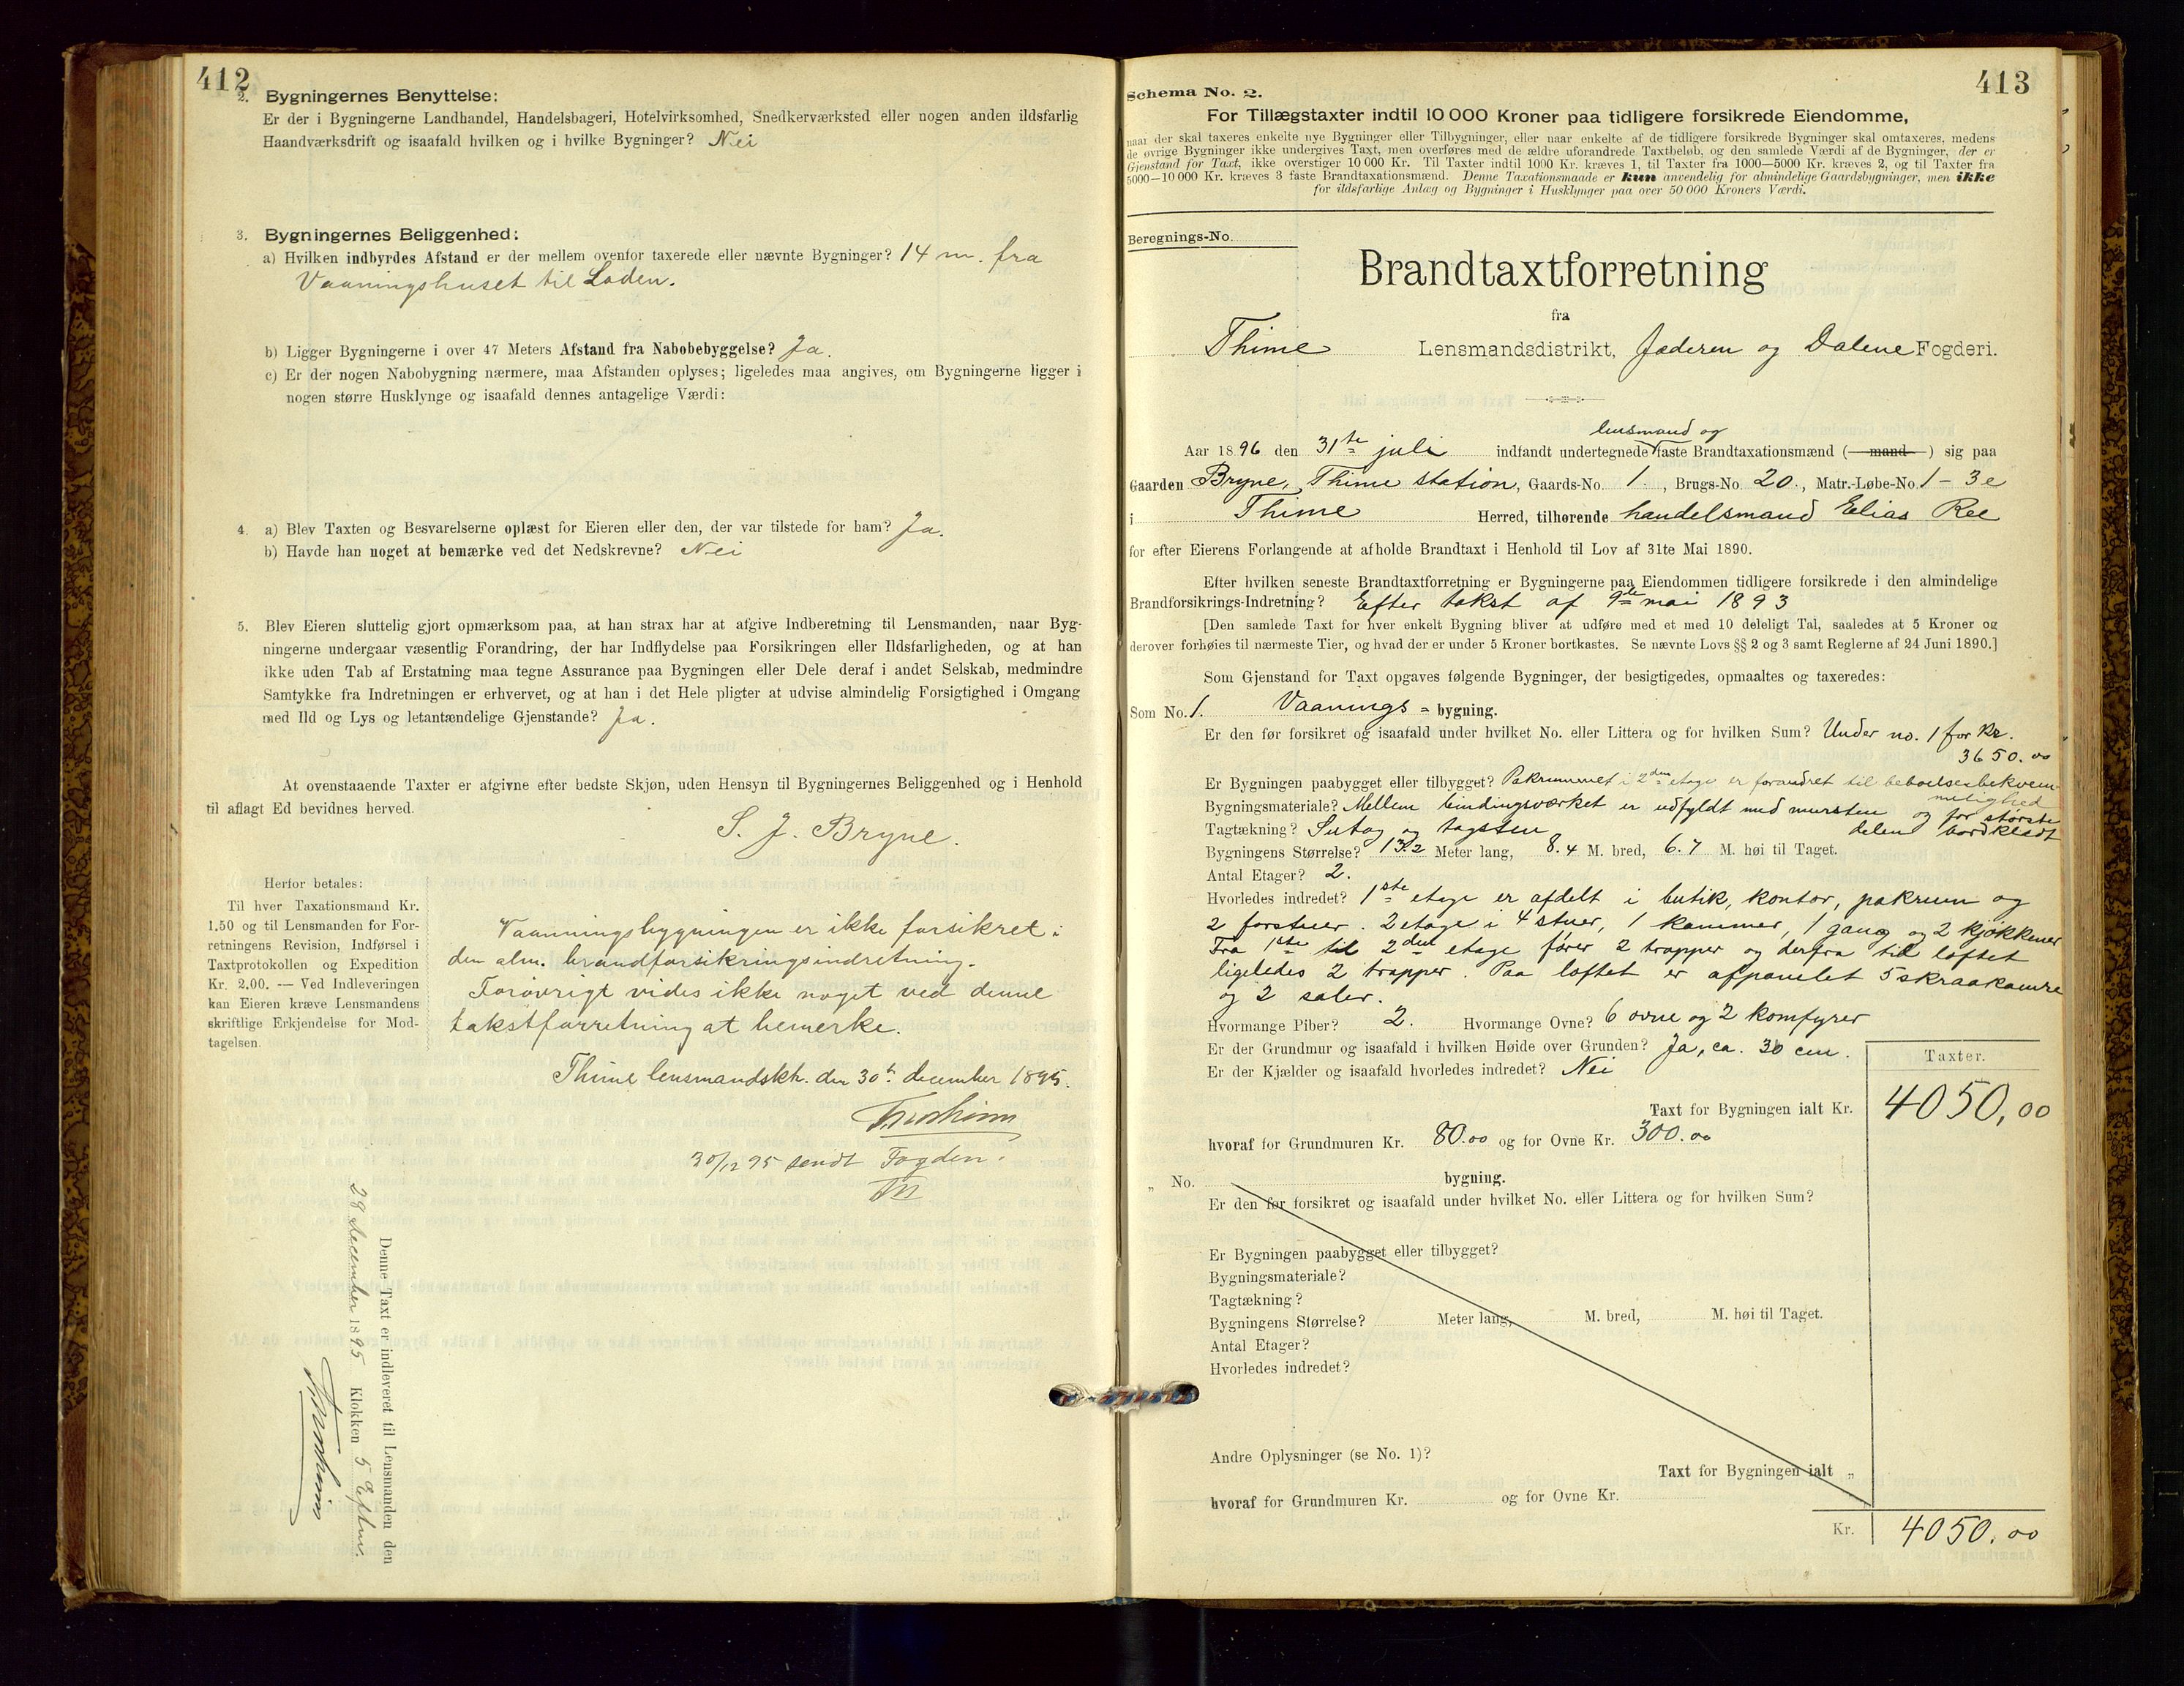 412
2. Bygningernes Benyttelse:
Er der i Bygningerne Landhandel, Handelsbageri, Hotelvirksomhed, Snedkerværksted eller nogen anden ildsfarlig
Haandværksdrift og isaafald hvilken og i hvilke Bygninger? Nei
3. Bygningernes Beliggenhed:
a) Hvilken indbyrdes Afstand er der mellem ovenfor taxerede eller nævnte Bygninger? 14 m. fra
Vaaningshuset til Laden.
b) Ligger Bygningerne i over 47 Meters Afstand fra Nabobebyggelse? Ja.
c) Er der nogen Nabobygning nærmere, maa Afstanden oplyses; ligeledes maa angives, om Bygningerne ligger i
nogen større Husklynge og isaafald dennes antagelige Værdi:
4. a) Blev Taxten og Besvarelserne oplæst for Eieren eller den, der var tilstede for ham? Ja.
b) Havde han noget at bemærke ved det Nedskrevne? Nei
5. Blev Eieren sluttelig gjort opmærksom paa, at han strax har at afgive Indberetning til Lensmanden, naar Byg-
ningerne undergaar væsentlig Forandring, der har Indflydelse paa Forsikringen eller Ildsfarligheden, og at han
ikke uden Tab af Erstatning maa tegne Assurance paa Bygningen eller Dele deraf i andet Selskab, medmindre
Samtykke fra Indretningen er erhvervet, og at han i det Hele pligter at udvise almindelig Forsigtighed i Omgang
med Ild og Lys og letantændelige Gjenstande? Ja.
At ovenstaaende Taxter er afgivne efter bedste Skjøn, uden Hensyn til Bygningernes Beliggenhed og i Henhold
til aflagt Ed bevidnes herved.
S. J. Bryne.
Herfor betales:
Til hver Taxationsmand Kr.
1.50 og til Lensmanden for For-
retningens Revision, Indførsel i
Taxtprotokollen og Expedition
Kr. 2,00. — Ved Indleveringen
kan Eieren kræve Lensmandens
skriftlige Erkjendelse for Mod-
tagelsen.
Vaaningsbygningen er ikke forsikret i
den alm. brandforsikringsindretning.
Forøvrigt vides ikke noget ved denne
takstforretning at bemerke.
Thime lensmandsktr. den 30te december 1895.
30/12 95 sendt Fogden.
Denne Taxt er indleveret til Lensmanden den
29 december 1895 Klokken 5 Efterm.
413
Schema No. 2.
For Tillægstaxter indtil 10 000 Kroner paa tidligere forsikrede Eiendomme,
naar der skal taxeres enkelte nye Bygninger eller Tilbygninger, eller naar enkelte af de tidligere forsikrede Bygninger skal omtaxeres, medens
de øvrige Bygninger ikke undergives Taxt, men overføres med de ældre uforandrede Taxtbeløb, og den samlede Værdi af de Bygninger, der er
Gjenstand for Taxt, ikke overstiger 10 000 Kr. Til Taxter indtil 1000 Kr. kræves 1, til Taxter fra 1000—5000 Kr. kræves 2, og til Taxter fra
5000—10 000 Kr. kræves 3 faste Brandtaxationsmænd. Denne Taxationsmaade er kun anvendelig for almindelige Gaardsbygninger, men ikke
for ildsfarlige Anlæg og Bygninger i Husklynger paa over 50 000 Kroners Værdi.
Beregnings-No.
Brandtaxtforretning
fra
Thime Lensmandsdistrikt, Jæderen og Dalene Fogderi.
lensmand og
Aar 1896 den 31te juli indfandt undertegnede faste Brandtaxationsmænd (mand) sig paa
Gaarden Bryne, Thime station, Gaards-No. 1., Brugs-No. 20., Matr.-Løbe-No. 1 - 3 e
i Thime Herred, tilhørende handelsmand Elias Ree
for efter Eierens Forlangende at afholde Brandtaxt i Henhold til Lov af 31te Mai 1890.
Efter hvilken seneste Brandtaxtforretning er Bygningerne paa Eiendommen tidligere forsikrede i den almindelige
Brandforsikrings-Indretning? Efter takst af 9de mai 1893
[Den samlede Taxt for hver enkelt Bygning bliver at udføre med et med 10 deleligt Tal, saaledes at 5 Kroner og
derover forhøies til nærmeste Tier, og hvad der er under 5 Kroner bortkastes. Se nævnte Lovs §§ 2 og 3 samt Reglerne af 24 Juni 1890.]
Som Gjenstand for Taxt opgaves følgende Bygninger, der besigtigedes, opmaaltes og taxeredes:
Som No. 1. Vaanings - bygning.
Er den før forsikret og isaafald under hvilket No. eller Littera og for hvilken Sum? Under no. 1 for kr.
3650.00
Er Bygningen paabygget eller tilbygget? Pakrummet i 2den etage er forandret til beboelsesbekvem-
melighed
Bygningsmateriale? Mellem bindingsværket er udfyldt med mursten og for største
delen bordklædt
Tagtækning? Sutag og tagsten
Bygningens Størrelse? 13.2 Meter lang, 8.4 M. bred, 6.7 M. høi til Taget.
Antal Etager? 2.
Hvorledes indredet? 1ste etage er afdelt i butik, kontor, pakrum og
2 forstuer. 2 etage i 4 stuer, 1 kammer, 1 gang og 2 kjøkkener
Fra 1ste til 2den etage fører 2 trapper og derfra til loftet
ligeledes 2 trapper. Paa loftet er afpanelet 5 skraakamre
og 2 saler.
Hvormange Piber? 2. Hvormange Ovne? 6 ovne og 2 komfyrer
Er der Grundmur og isaafald i hvilken Høide over Grunden? Ja, ca. 30 cm.
Er der Kjælder og isaafald hvorledes indredet? Nei
Taxter.
Taxt for Bygningen ialt Kr. 4050,00
hvoraf for Grundmuren Kr. 80.00 og for Ovne Kr. 300.00
„ No. bygning.
Er den før forsikret og isaafald under hvilket No. eller Littera og for hvilken Sum?
Er Bygningen paabygget eller tilbygget?
Bygningsmateriale?
Tagtækning?
Bygningens Størrelse? Meter lang, M. bred, M. høi til Taget.
Antal Etager?
Hvorledes indredet?
Andre Oplysninger (se No. 1)?
Taxt for Bygningen ialt „
hvoraf for Grundmuren Kr. og for Ovne Kr.
Kr. 4050.00